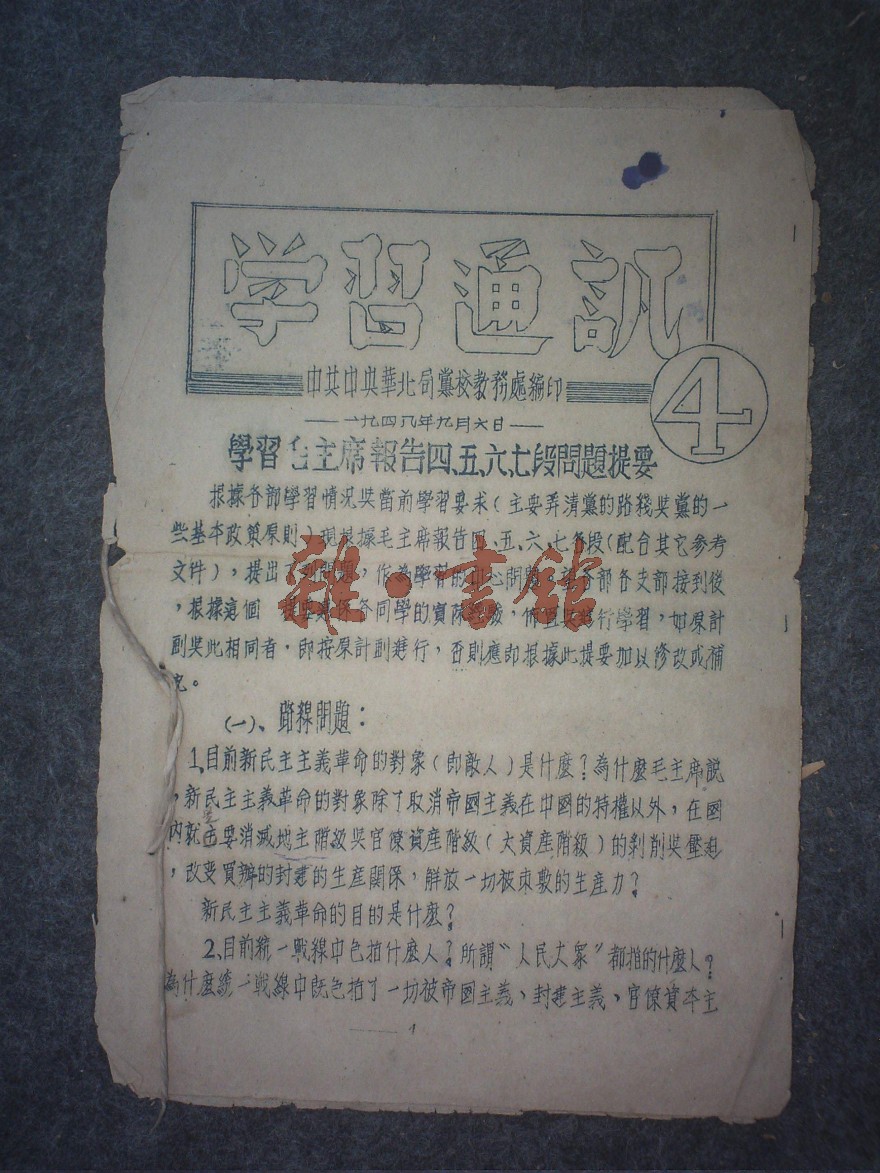 学習通訊
4
中共中央華北局黨校教務處編印
一九四八年九月六日
學習毛主席報告四、五、六、七段問題提要
根據各部學習情况與當前學習要求(主要弄清黨的路綫與黨的一
些基本政策原則)現根據毛主席報告四、五、六、七各段(配合其它參考
文件),提出下列問題,作為學習的中心問題,望各部各支部接到後
,根據這個 提要聯係各同學的實際經驗,佈置進行學習,如原計
劃與此相同者,即按原計劃進行,否則應即根據此提要加以修改或補
充。
(一)、路線問題:
1、目前新民主主義革命的對象(即敵人)是什麽?為什麽毛主席説
,新民主主義革命的對象除了取消帝國主義在中國的特權以外,在國
内就主要消滅地主階級與官僚資產階級(大資產階級)的剝削與壓迫
,改变買辦的封建的生産關係,解放一切被束敷的生産力?
新民主主義革命的目的是什麽?
2、目前統一戰線中包括什麽人?所謂“人民大衆”都指的什麽人?
為什麽統一戰線中既包括了一切被帝國主義、封建主義、官僚資本主
1
雜·書館